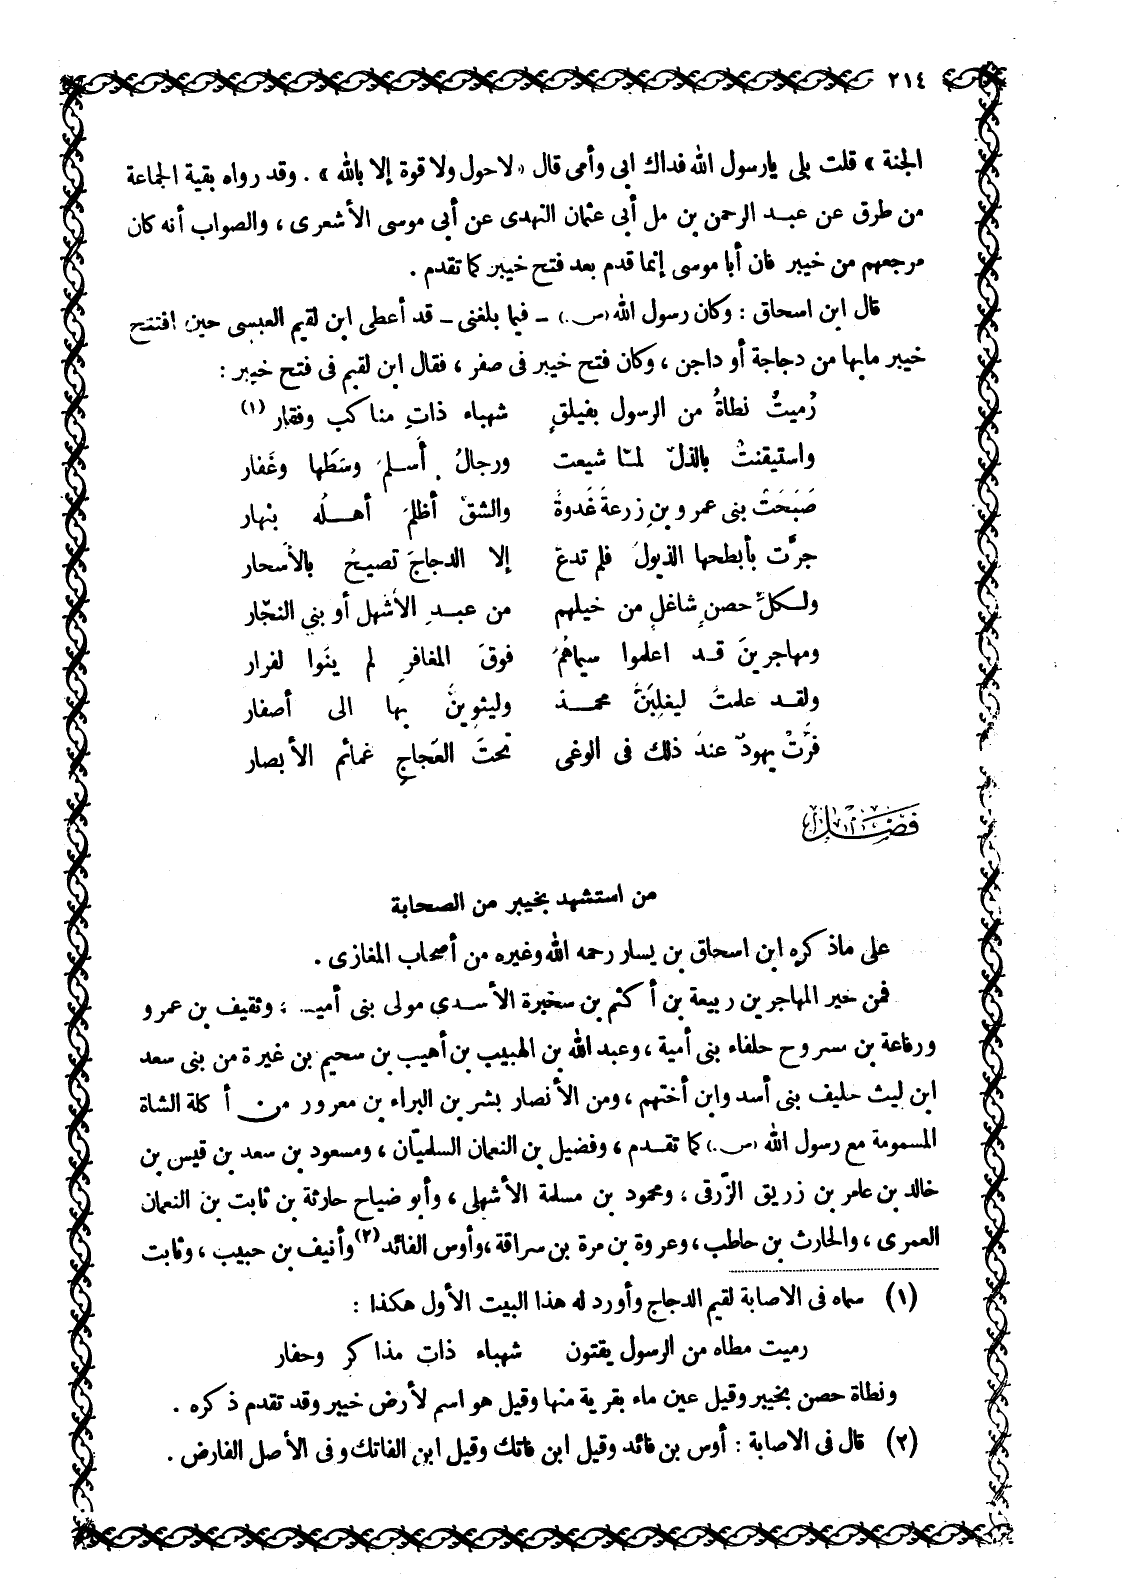 ٢١٤
الجنة » قلت بلى يارسول الله فداك ابى وأمى قال « لا حول ولا قوة إلا بالله » . وقد رواه بقية الجماعة
من طرق عن عبد الرحمن بن مل أبى عثمان النهدى عن أبى موسى الأشعرى ، والصواب أنه كان
مرجعهم من خيبر فان أبا موسى إنما قدم بعد فتح خيبر كما تقدم .
قال ابن اسحاق : وكان رسول الله (ص.) ــ فيما بلغنى ــ قد أعطى ابن لقيم العبسى حين افتتح
خيبر مابها من دجاجة أو داجن ، وكان فتح خيبر فى صفر ، فقال ابن لقيم فى فتح خيبر :
رُميتْ نطاةُ من الرسول بفيلقٍ شهباء ذاتِ مناكب وفقار (١)
واستيقنتْ بالذلّ لمّا شيعت ورجالُ أسلمَ وسَطَها وغَفار
صَبَحَتْ بنى عمرو بنِ زرعةَ غُدوةً والشقّ أظلمَ أهلُه بنهار
جرَّت بأبطحها الذيولَ فلم تدعْ إلا الدجاجَ تصيحُ بالأسحار
ولكلّ حصنٍ شاغلٍ من خيلهم من عبدِ الأشهل أو بنى النجّار
ومهاجرينَ قد اعلموا سيماهُمُ فوقَ المغافرِ لم ينَوا لفرار
ولقد علمتُ ليغلِبَنَّ محمد وليثوِينَّ بها الى أصفار
فَرَّتْ يهودٌ عندَ ذلك فى الوغى تحتَ العَجاجِ غمائم الأبصار
فصل
من استشهد بخيبر من الصحابة
على ماذكره ابن اسحاق بن يسار رحمه الله وغيره من أصحاب المغازى .
فمن خير المهاجرين ربيعة بن أكثم بن سخبرة الأسدى مولى بنى أمية ، وثقيف بن عمرو
ورفاعة بن مسروح حلفاء بنى أمية ، وعبد الله بن الهبيب بن أهيب بن سحيم بن غيرة من بنى سعد
ابن ليث حليف بنى أسد وابن أختهم ، ومن الأنصار بشر بن البراء بن معرور من أكلة الشاة
المسمومة مع رسول الله (ص.) كما تقدم ، وفضيل بن النعمان السلميّان ، ومسعود بن سعد بن قيس بن
خالد بن عامر بن زريق الزّرقى ، ومحمود بن مسلمة الأشهلى ، وأبو ضياح حارثة بن ثابت بن النعمان
العمرى ، والحارث بن حاطب ، وعروة بن مرة بن سراقة ، وأوس الفائد (٢) وأنيف بن حبيب ، وثابت
(١) سماه فى الاصابة لقيم الدجاج وأورد له هذا البيت الأول هكذا :
رميت مطاه من الرسول يقتون شهباء ذات مذاكر وحفار
ونطاة حصن بخيبر وقيل عين ماء بقرية منها وقيل هو اسم لأرض خيبر وقد تقدم ذكره .
(٢) قال فى الاصابة : أوس بن فائد وقيل ابن فاتك وقيل ابن الفاتك وفى الأصل الفارض .